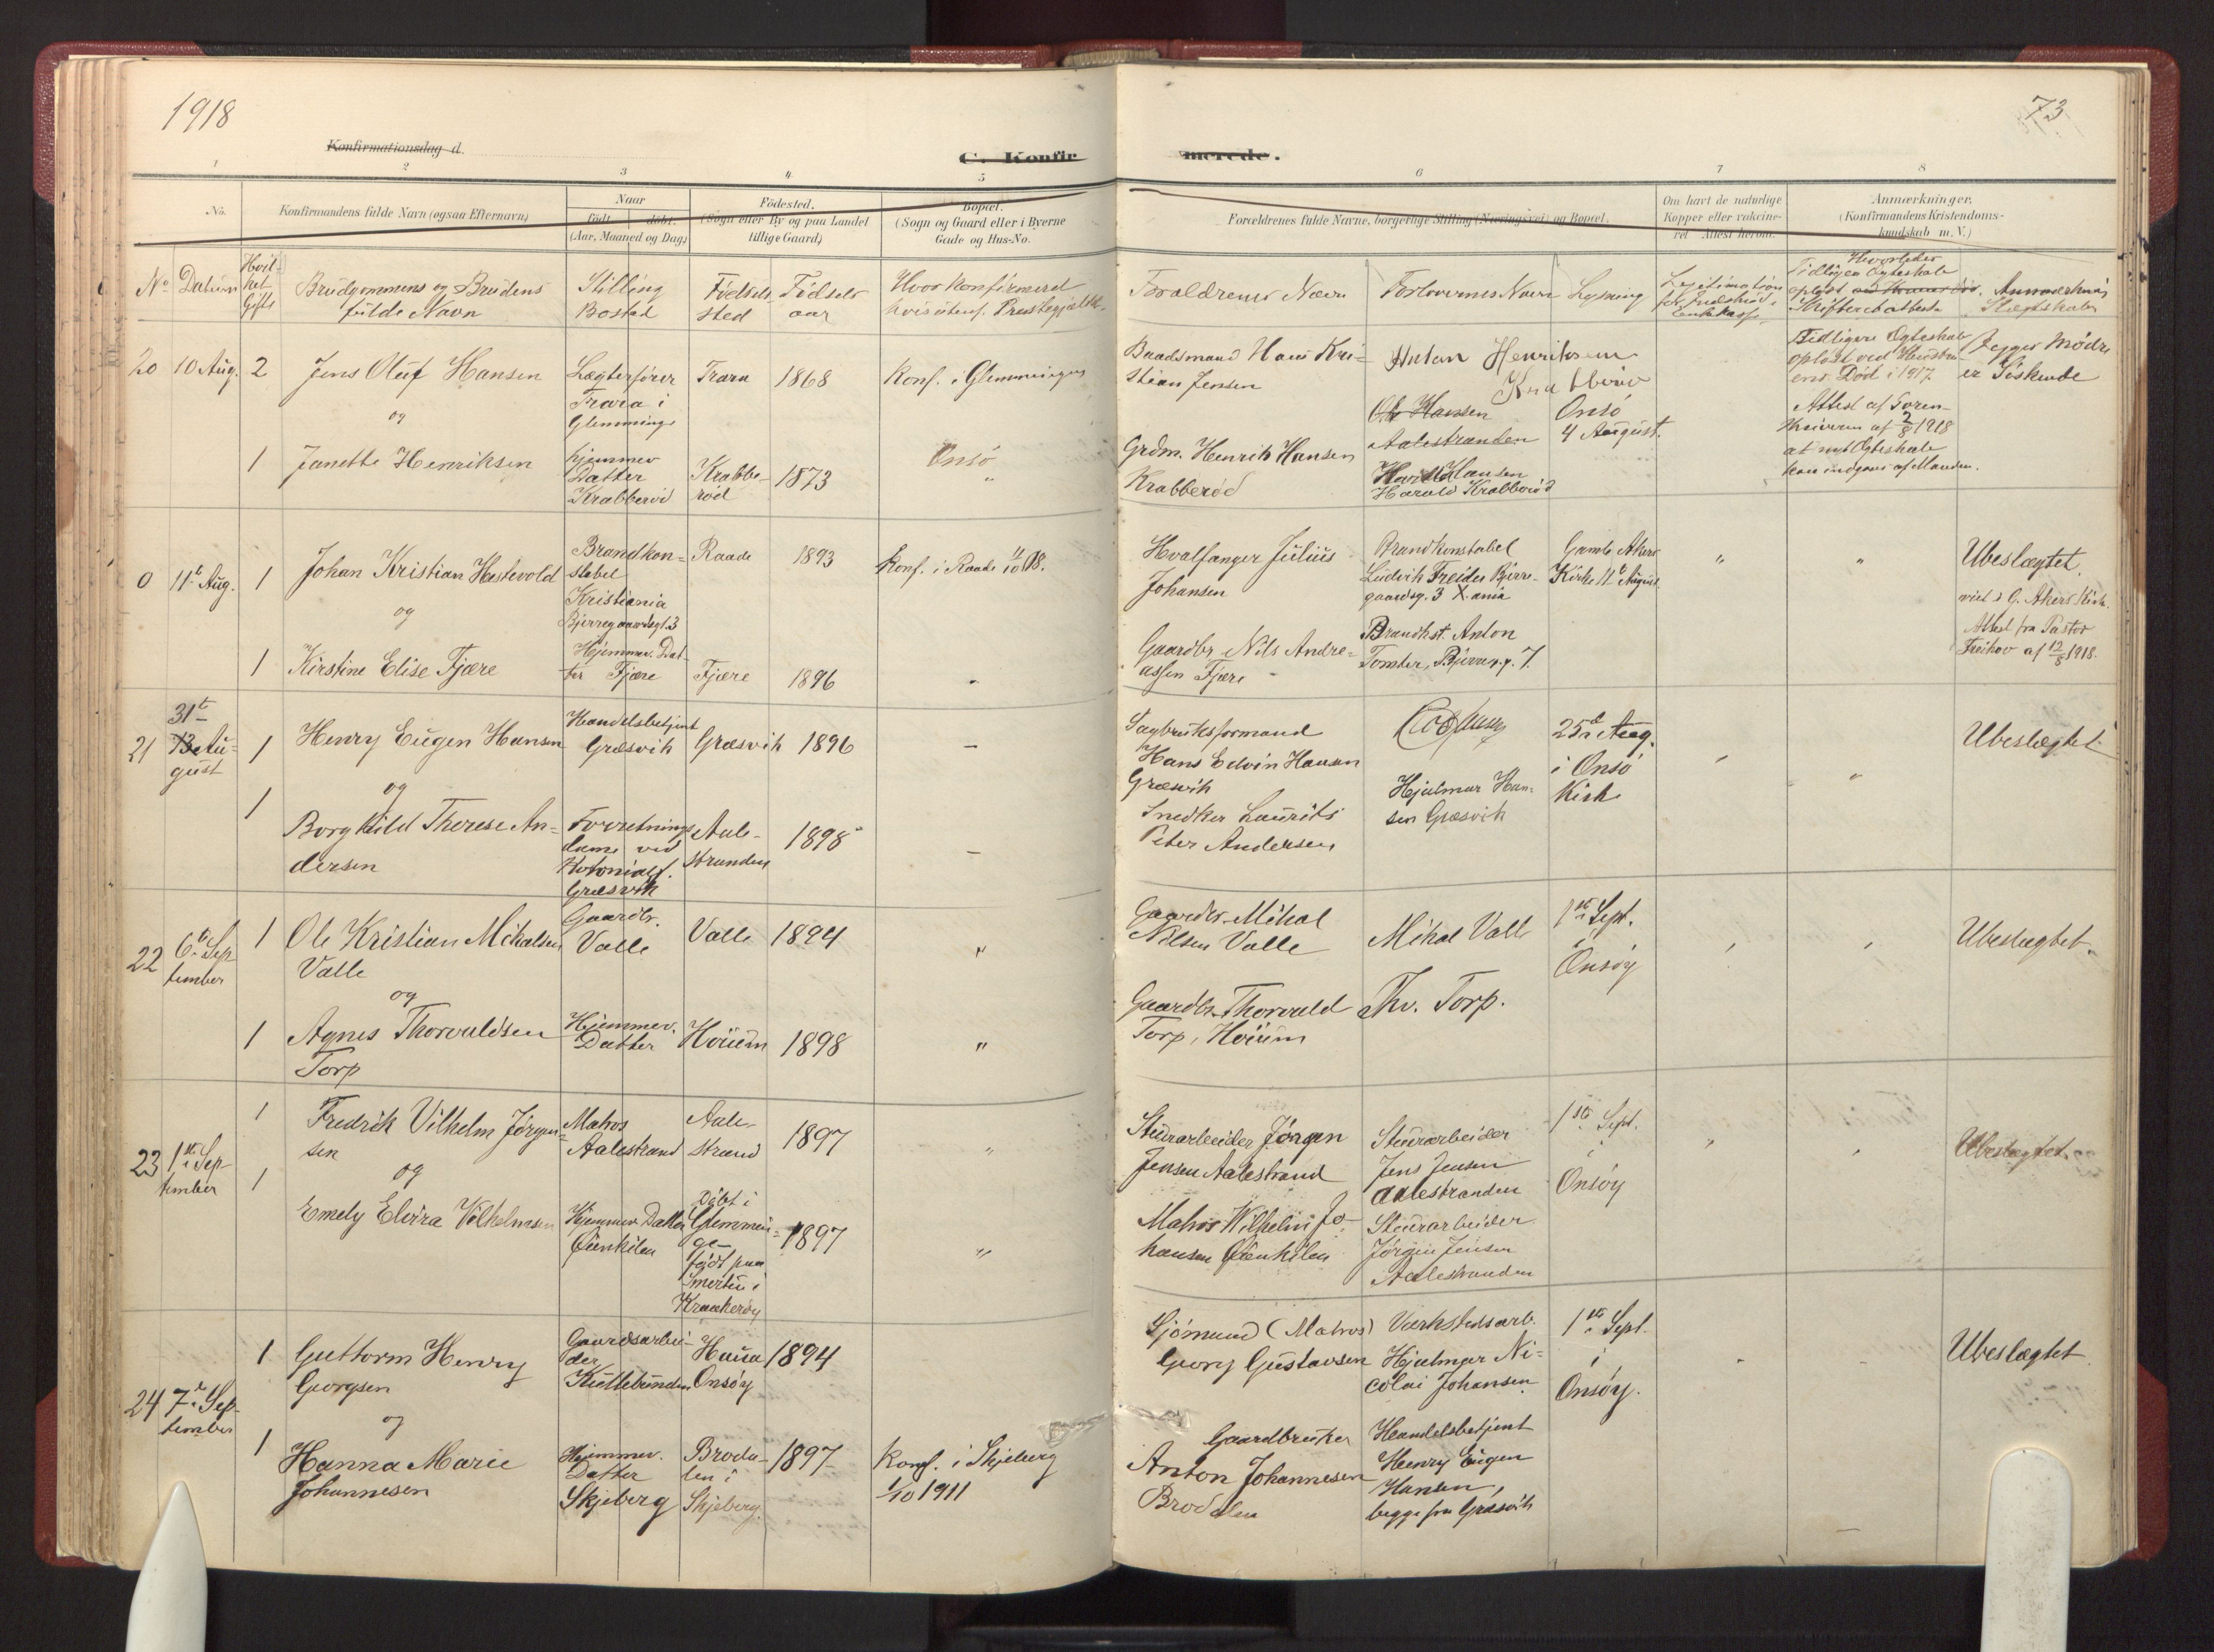 1918
73
Konfirmationsdag d.
C. Konfirmerede.
1 2 3 4 5 6 7 8
No.
Konfirmandens fulde Navn (ogsaa Efternavn)
Naar
født. døbt.
(Aar, Maaned og Dag)
Fødested.
(Sogn eller By og paa Landet
tillige Gaard)
Bopæl.
(Sogn og Gaard eller i Byerne
Gade og Hus-No.
Forældrenes fulde Navne, borgerlige Stilling (Næringsvei) og Bopæl.
Om havt de naturlige
Kopper eller vakcine-
ret Attest herom.
Anmærkninger.
(Konfirmandens Kristendoms-
kundskab m. V.)
No Datum
Hvil-
ket
Gifte
Brudgommens og Brudens
fulde Navn
Stilling
Bosted
Födsels
sted
Födsels
aar
Hvor konfirmerd
Forældrenes Navn
Forlovernes Navn
Lysning
Legitimation
Tidligere Ægteskab
oplöst
20 10 Aug. 2
Jens Oluf Hansen
og
Lægterförer
Trara i
Glemminge
Trara
1868
Konf. i Glemminge
Baadsmand Hans Kri-
stian Jensen
Anton Henriksen
Ole Hansen
Aalestranden
Onsö
4 August.
Tidligere Ægteskab
oplöst ved Hustru-
ens Död i 1917
Attest af Foren-
at nyt Ægteskab
kan indgaaes af Manden.
Begges Mödre
er Söskende
1
Janette Henriksen
hjemmev
Datter
Krabberöd
Krabbe-
röd
1873
Onsö
"
Grdm. Henrik Hansen
Krabberöd
Harald Krabberöd
0 11te Aug. 1
Johan Kristian Hestevold
og
Brandkon-
stabel
Kristiania
Bjerregaardsgt. 3
Raade
1893
Konf. i Raade 11/10 08.
Hvalfanger Julius
Johansen
Brandkonstabel
Ludvik Freider Bjerre-
gaardsg. 3 X.ania
Gamle Akers
Kirke 11te August
"
"
Ubeslægtet.
viet i G. Akers Kirke.
Attest fra Pastor
af 12/8 1918.
1
Kirstine Elise Fjære
Hjemmev. Dat-
ter Fjære
Fjære
1896
"
Gaardbr. Nils Andre-
assen Fjære
Brandkst. Anton
Tomter, Bjerreg.g. 7.
21
31te
Au-
gust
1
Henry Eugen Hansen
og
Handelsbetjent
Græsvik
Græsvik
1896
–
Sagbruksformand
Hans Edvin Hansen
Græsvik
25de Aug.
i Onsö
Kirke
"
"
Ubeslægtet
1
Borghild Therese An-
dersen
Forretnings
dame ved
Kolonialf.
Græsvik
Aale-
stranden
1898
–
Snedker Laurits
Peter Andersen
Hjalmar Han-
sen Græsvik
22
6te Sep
tember
1
Ole Kristian Mikalsen
Valle
og
Gaardbr.
Valle
Valle
1894
"
Gaardbr. Mikal
Nilsen Valle
Mikal Valle
1ste Sept.
i
Onsöy
"
"
Ubeslægtet.
1
Agnes Thorvaldsen
Torp
Hjemmev.
Datter
Höium
1898
"
Gaardbr. Thorvald
Torp, Höium
Thv. Torp.
23
1ste Sep
tember
1
Fredrik Vilhelm Jörgen-
sen
og
Matros
Aalestrand
Aale-
strand
1897
"
Stuerarbeider Jörgen
Jensen Aalestrand
Stuerarbeider
Jens Jensen
Aalestranden
1ste Sept.
i
Onsöy
"
"
Ubeslægtet.
1
Emely Elvira Vilhelmsen
Hjemmev. Datter
Öienkilen
Döbt i
Glemmin-
ge
födt paa
Smertu i
Kraakeröy
1897
"
Matros Wilhelm Jo-
hansen Öienkilen
Stuerarbeider
Jörgen Jensen
Aalestranden
24
7de Sep-
tember
1
Guttorm Henry
Georgsen
og
Gaardsarbei-
der
Kuttebunden
Hauja
Onsöy
1894
Sjömand (Matros)
Georg Gustavsen
Værkstedsarb.
Hjalmar Ni-
colai Johansen.
1ste Sept.
i
Onsöy.
"
"
Ubeslægtet
1
Hanna Marie
Johannesen
Hjemmev.
Datter
Skjeberg
Broda-
len i
Skjeberg.
1897
Konf. i Skjeberg
1/10 1911
Gaardbruker
Anton Johannesen
Brodalen
Handelsbetjent
Henry Eugen
Hansen,
begge fra Græsvik